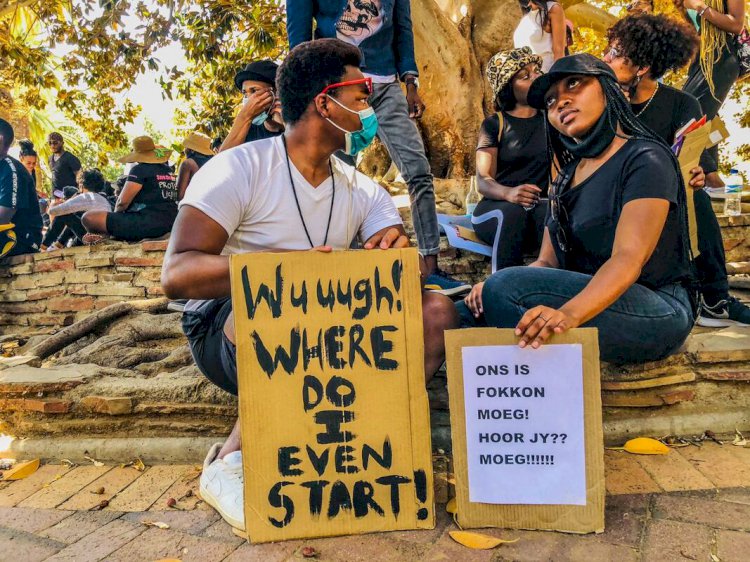 Wuuugh!
WHERE
DO
I
EVEN
START!
ONS IS
FOKKON
MOEG!
HOOR JY??
MOEG!!!!!!